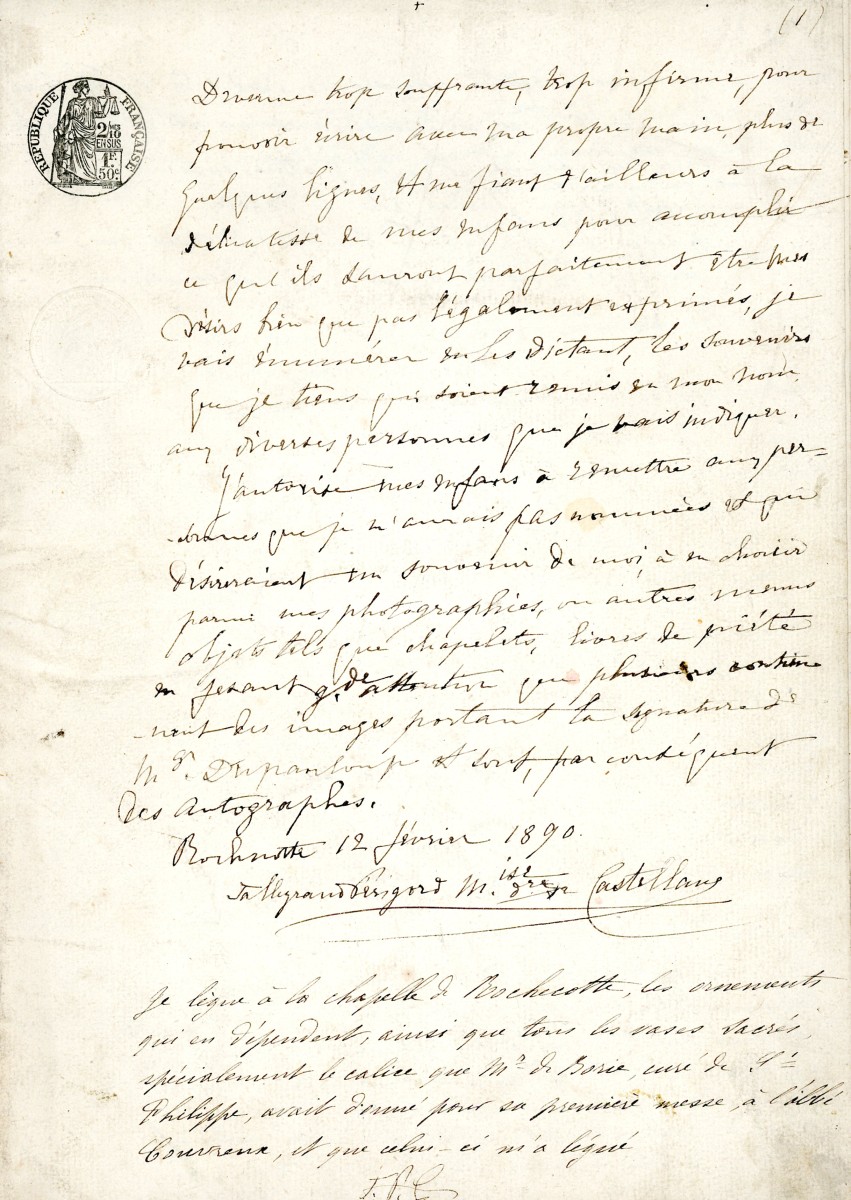 (1)
RÉPUBLIQUE FRANÇAISE
2/10 EN SUS
1F. 50c.
Devenue trop souffrante, trop infirme, pour
pouvoir écrire avec ma propre main, plus de
quelques lignes, et me fiant d'ailleurs à la
délicatesse de mes enfans pour accomplir
ce qu'ils sauront parfaitement être mes
désirs bien que pas légalement exprimés, je
vais énumérer en les dictant, les souvenirs
que je tiens qui soient remis en mon nom
aux diverses personnes que je vais indiquer.
J'autorise mes enfans à remettre aux per-
-sonnes que je n'aurais pas nommées et qui
désireraient un souvenir de moi à en choisir
parmi mes photographies, ou autres menus
objets tels que chapelets, livres de piété
en fesant gde attention que plusieurs contien
-nent des images portant la signature de
Mgr Dupanloup et sont, par conséquent
des autographes.
Rochecotte 12 février 1890.
Talleyrand Périgord M.ise de Castellane
Je lègue à la chapelle de Rochecotte, les ornements
qui en dépendent, ainsi que tous les vases sacrés,
spécialement le calice que Mr de Borie, curé de St
Philippe, avait donné pour sa première messe, à l'abbé
Couvreux, et que celui-ci m'a légué
T.P.C